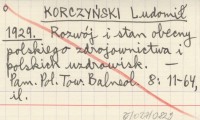 KORCZYŃSKI Ludomił
1929. Rozwój i stan obecny
polskiego zdrojownictwa i
polskich uzdrowisk. —
Pam. Pol. Tow. Balneol. 8: 11-64,
il.